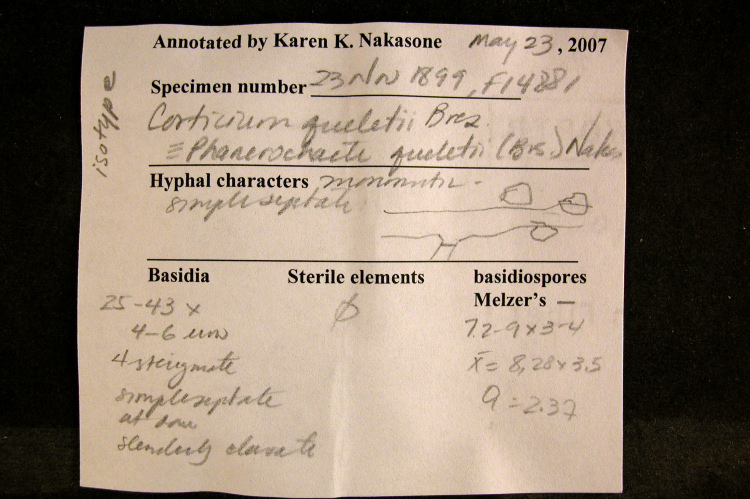 Annotated by Karen K. Nakasone May 23, 2007
isotype
Specimen number 23 Nov 1899, F14881
Corticium queletii Bres.
≡ Phanerochaete queletii (Bres.) Nakas
Hyphal characters monomitic -
simple septate
Basidia Sterile elements basidiospores
Melzer's —
25-43 x
4-6 um
4 sterigmate
simple septate
at base
slenderly clavate
∅
7.2-9 x 3-4
x̄ = 8.28 x 3.5
Q = 2.37